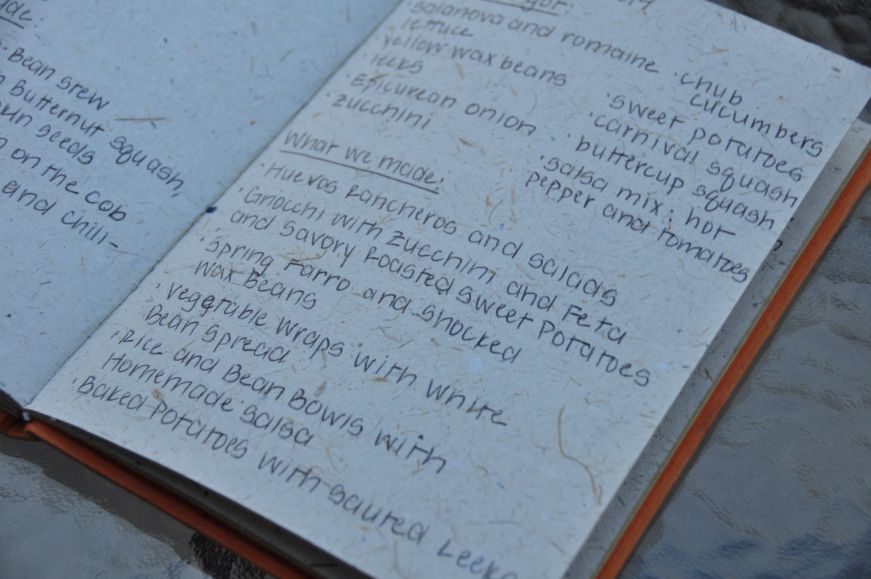 made:
Bean stew
Butternut squash,
seeds
on the cob
and chili-
got:
·Salanova and romaine
lettuce
·yellow wax beans
·leeks
·Epicurean onion
·zucchini
·chub
cucumbers
·sweet potatoes
·carnival squash
·buttercup squash
·salsa mix: hot
pepper and tomatoes
What we made:
·Huevos Rancheros and salads
·Gnocchi with zucchini and Feta
and Savory Roasted Sweet Potatoes
·Spring Farro and Shocked
Wax Beans
·Vegetable Wraps with White
Bean Spread
·Rice and Bean Bowls with
Homemade Salsa
·Baked Potatoes with Sauted Leeks